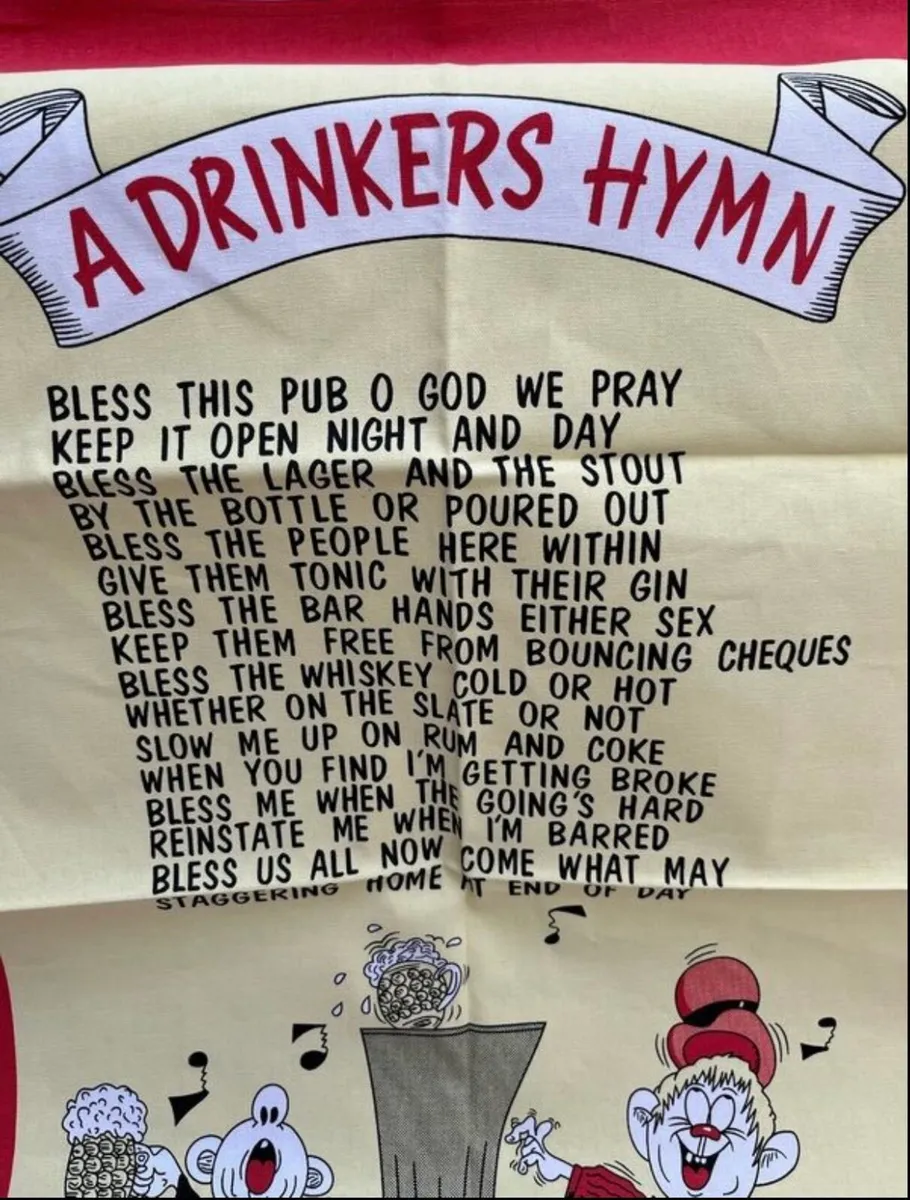 A DRINKERS HYMN
BLESS THIS PUB O GOD WE PRAY
KEEP IT OPEN NIGHT AND DAY
BLESS THE LAGER AND THE STOUT
BY THE BOTTLE OR POURED OUT
BLESS THE PEOPLE HERE WITHIN
GIVE THEM TONIC WITH THEIR GIN
BLESS THE BAR HANDS EITHER SEX
KEEP THEM FREE FROM BOUNCING CHEQUES
BLESS THE WHISKEY COLD OR HOT
WHETHER ON THE SLATE OR NOT
SLOW ME UP ON RUM AND COKE
WHEN YOU FIND I'M GETTING BROKE
BLESS ME WHEN THE GOING'S HARD
REINSTATE ME WHEN I'M BARRED
BLESS US ALL NOW COME WHAT MAY
STAGGERING HOME AT END OF DAY